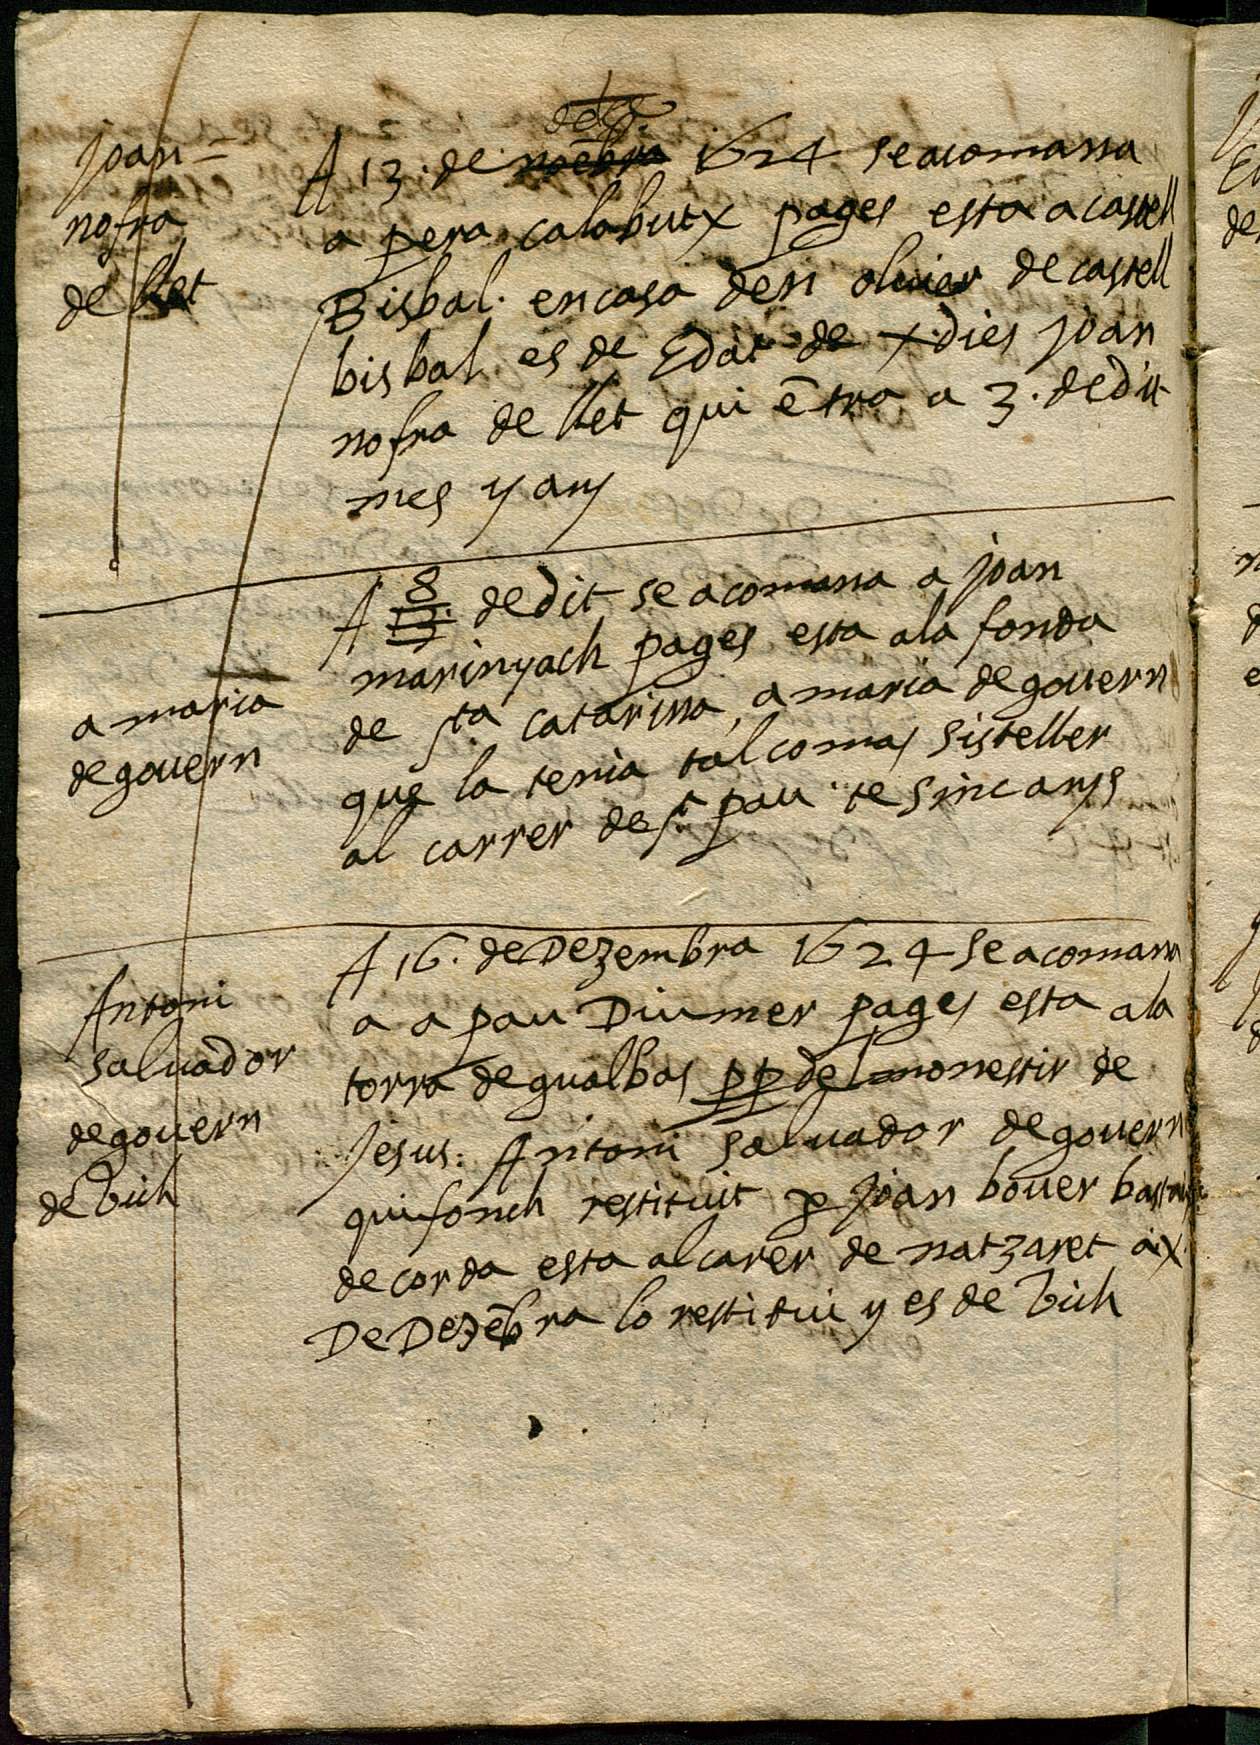 Joan
nofra
de llet
dez.e
A 13. de noēbra 1624 se acomana
a pera calabutx pages esta a castell
Bisbal. en casa den oliuer de castell
bisbal es de Edat de x dies joan
nofra de llet qui ētra a 3. de dit
mes y any
a maria
de gouern
A 8 13 de dit se acomana a joan
marinyach pages esta ala fonda
de sta catarina, a maria de gouern
que la tenia tal comas sisteller
al carrer de st pau te sinc anys
Antoni
saluador
de gouern
de Vich
A 16. de Dezembra 1624 se acomana
a a pau Diumer pages esta ala
torra de gualbas pp del monestir de
Jesus: Antoni saluador de gouern
qui fonch restituit p joan bouer
de corda esta al carer de natzaret a x
De Dezēbra lo restitui y es de Vich